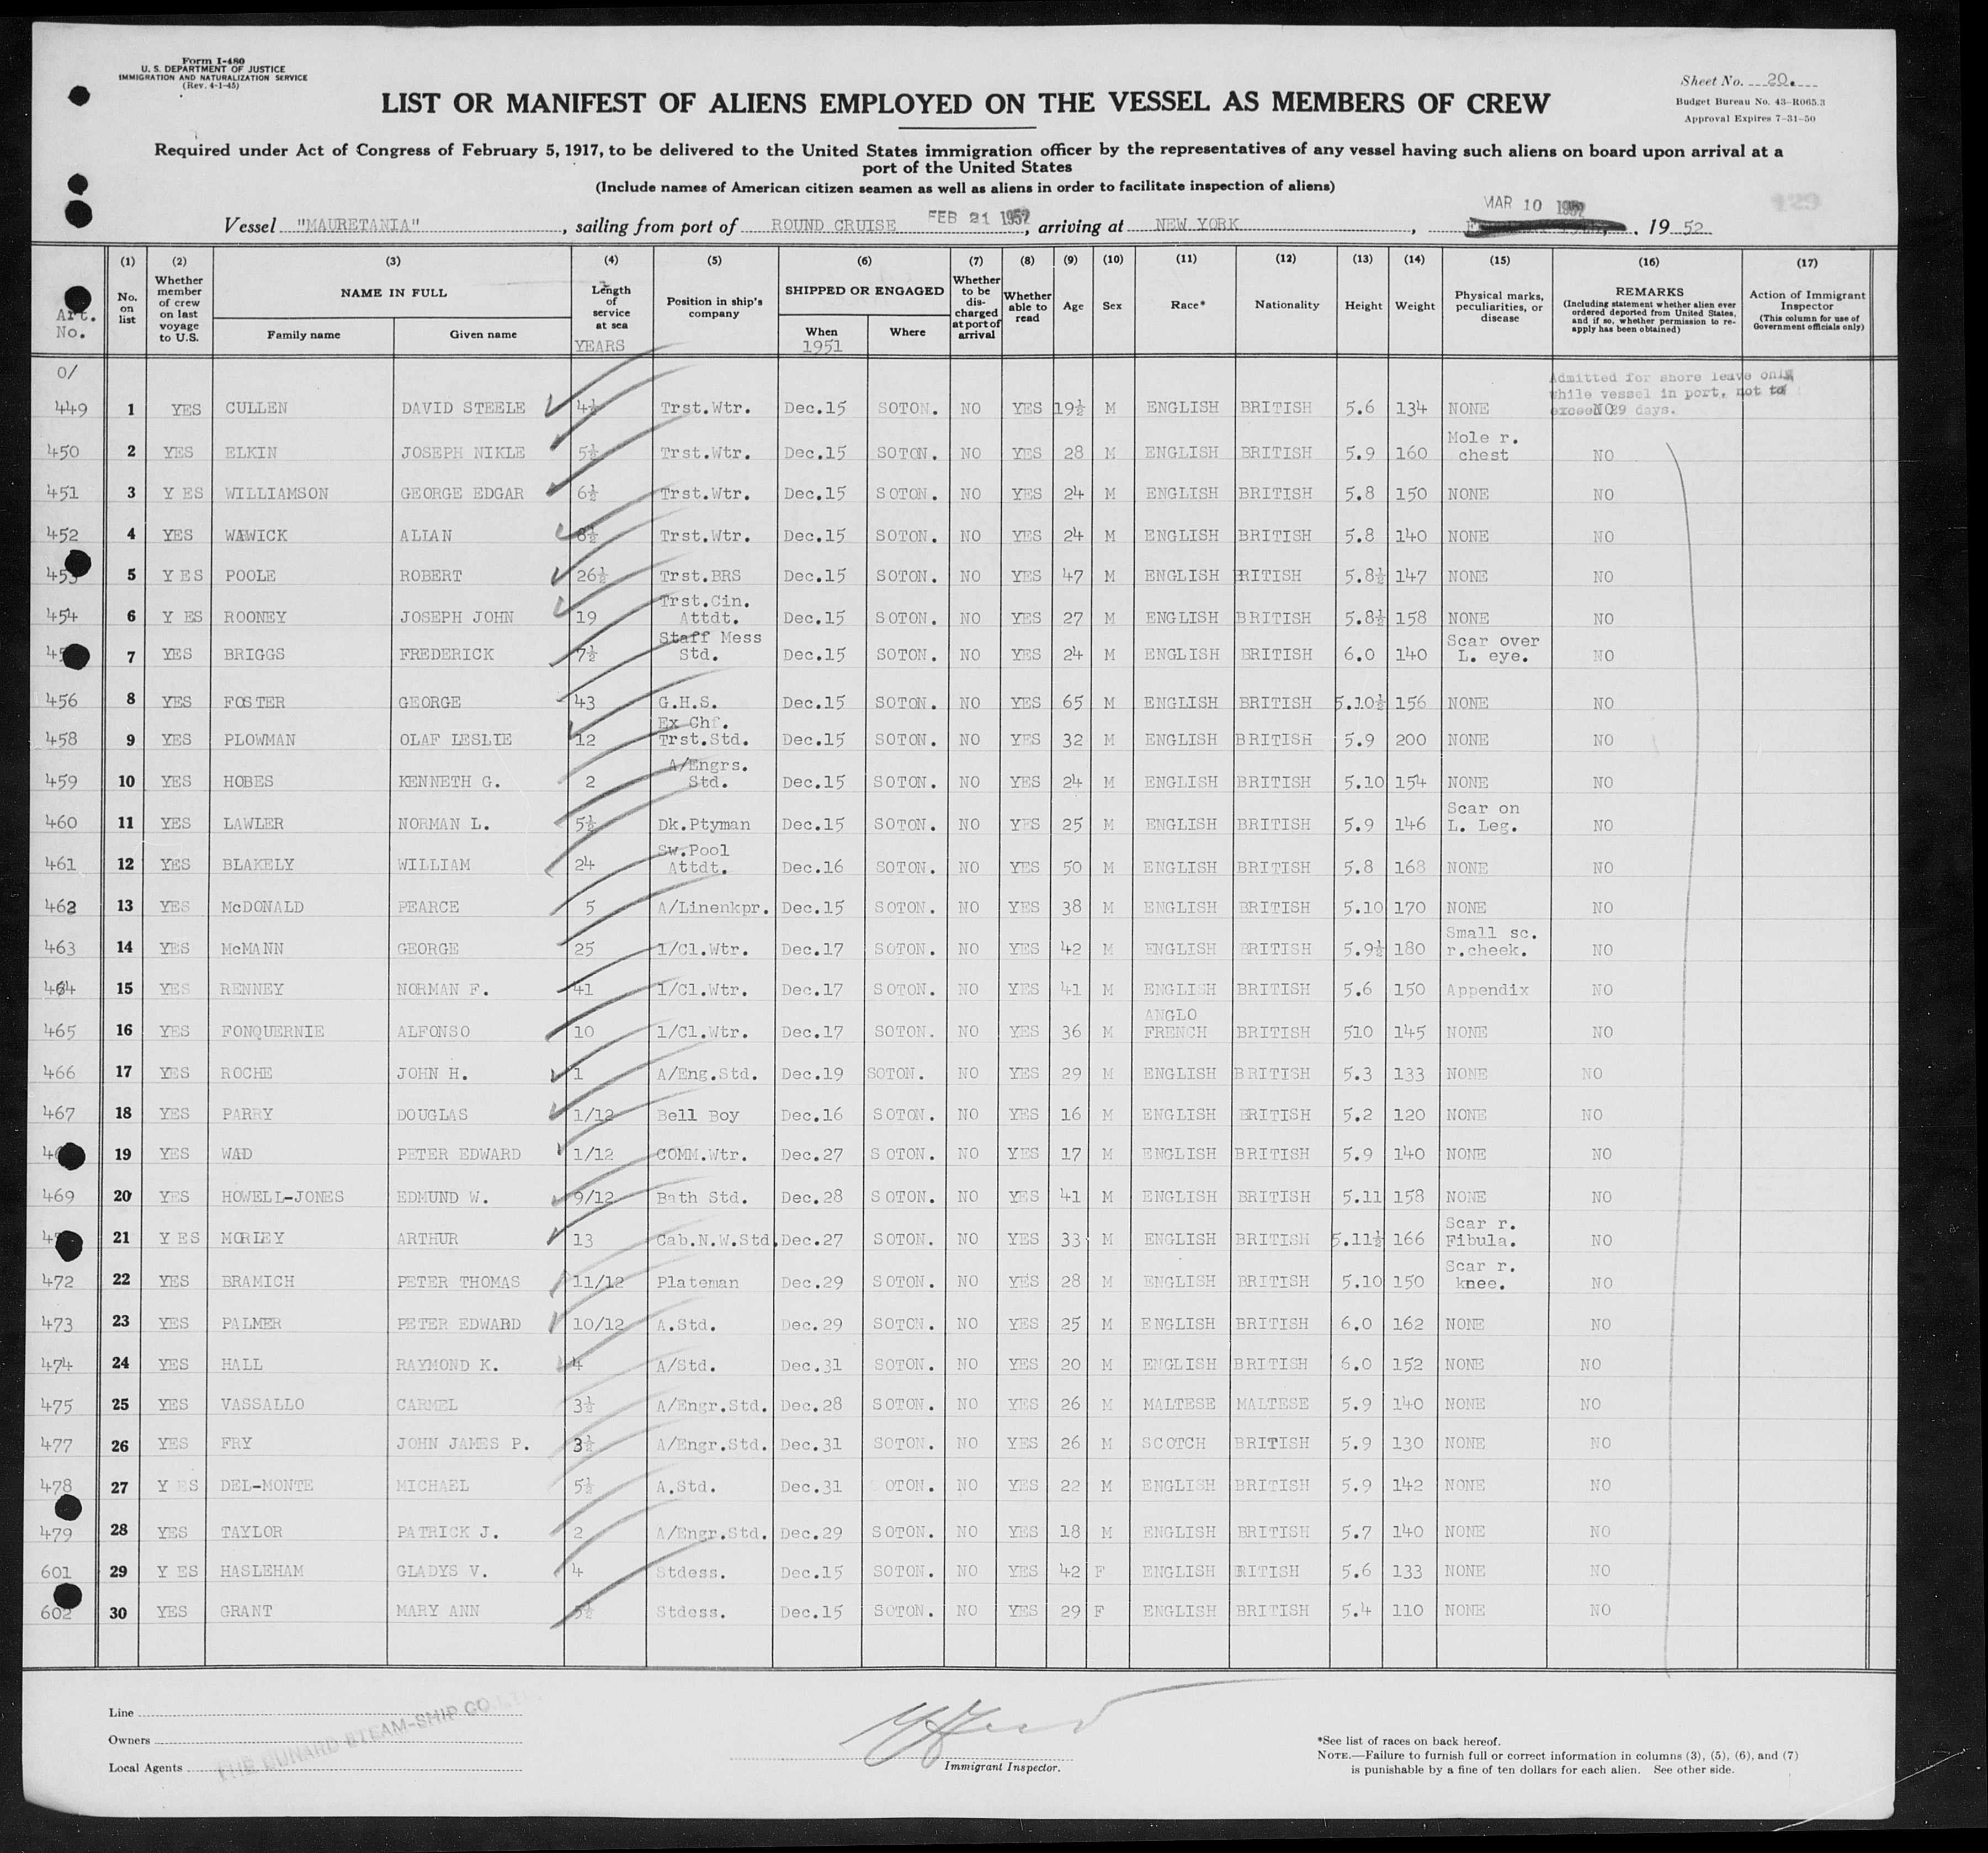 Form I-480
U. S. DEPARTMENT OF JUSTICE
IMMIGRATION AND NATURALIZATION SERVICE
(Rev. 4-1-45)
Sheet No. 20.
Budget Bureau No. 43-R065.3
Approval Expires 7-31-50
LIST OR MANIFEST OF ALIENS EMPLOYED ON THE VESSEL AS MEMBERS OF CREW
Required under Act of Congress of February 5, 1917, to be delivered to the United States immigration officer by the representatives of any vessel having such aliens on board upon arrival at a
port of the United States
(Include names of American citizen seamen as well as aliens in order to facilitate inspection of aliens)
129
Vessel "MAURETANIA", sailing from port of ROUND CRUISE FEB 21 1952, arriving at NEW YORK, MAR 10 1952, 1952
Art. No. (1) No. on list (2) Whether member of crew on last voyage to U.S. (3) NAME IN FULL Family name Given name (4) Length of service at sea YEARS (5) Position in ship's company (6) SHIPPED OR ENGAGED When 1951 Where (7) Whether to be discharged at port of arrival (8) Whether able to read (9) Age (10) Sex (11) Race* (12) Nationality (13) Height (14) Weight (15) Physical marks, peculiarities, or disease (16) REMARKS (Including statement whether alien ever ordered deported from United States, and if so, whether permission to re-apply has been obtained) (17) Action of Immigrant Inspector (This column for use of Government officials only)
0/
Admitted for shore leave only while vessel in port, not to exceed 29 days.
449 1 YES CULLEN DAVID STEELE 4½ Trst.Wtr. Dec.15 SOTON. NO YES 19½ M ENGLISH BRITISH 5.6 134 NONE NO
450 2 YES ELKIN JOSEPH NIKLE 5½ Trst.Wtr. Dec.15 SOTON. NO YES 28 M ENGLISH BRITISH 5.9 160 Mole r. chest NO
451 3 Y ES WILLIAMSON GEORGE EDGAR 6½ Trst.Wtr. Dec.15 SOTON. NO YES 24 M ENGLISH BRITISH 5.8 150 NONE NO
452 4 YES WAWICK ALIAN 8½ Trst.Wtr. Dec.15 SOTON. NO YES 24 M ENGLISH BRITISH 5.8 140 NONE NO
453 5 Y ES POOLE ROBERT 26½ Trst.BRS Dec.15 SOTON. NO YES 47 M ENGLISH BRITISH 5.8½ 147 NONE NO
454 6 Y ES ROONEY JOSEPH JOHN 19 Trst.Cin. Attdt. Dec.15 SOTON. NO YES 27 M ENGLISH BRITISH 5.8½ 158 NONE NO
7 YES BRIGGS FREDERICK 7½ Staff Mess Std. Dec.15 SOTON. NO YES 24 M ENGLISH BRITISH 6.0 140 Scar over L. eye. NO
456 8 YES FOSTER GEORGE 43 G.H.S. Dec.15 SOTON. NO YES 65 M ENGLISH BRITISH 5.10½ 156 NONE NO
458 9 YES PLOWMAN OLAF LESLIE 12 Ex Chf. Trst.Std. Dec.15 SOTON. NO YES 32 M ENGLISH BRITISH 5.9 200 NONE NO
459 10 YES HOBES KENNETH G. 2 A/Engrs. Std. Dec.15 SOTON. NO YES 24 M ENGLISH BRITISH 5.10 154 NONE NO
460 11 YES LAWLER NORMAN L. 5½ Dk.Ptyman Dec.15 SOTON. NO YES 25 M ENGLISH BRITISH 5.9 146 Scar on L. Leg. NO
461 12 YES BLAKELY WILLIAM 24 Sw.Pool Attdt. Dec.16 SOTON. NO YES 50 M ENGLISH BRITISH 5.8 168 NONE NO
462 13 YES McDONALD PEARCE 5 A/Linenkpr. Dec.15 SOTON. NO YES 38 M ENGLISH BRITISH 5.10 170 NONE NO
463 14 YES McMANN GEORGE 25 1/Cl.Wtr. Dec.17 SOTON. NO YES 42 M ENGLISH BRITISH 5.9½ 180 Small sc. r.cheek. NO
464 15 YES RENNEY NORMAN F. 41 1/Cl.Wtr. Dec.17 SOTON. NO YES 41 M ENGLISH BRITISH 5.6 150 Appendix NO
465 16 YES FONQUERNIE ALFONSO 10 1/Cl.Wtr. Dec.17 SOTON. NO YES 36 M ANGLO FRENCH BRITISH 510 145 NONE NO
466 17 YES ROCHE JOHN H. 1 A/Eng.Std. Dec.19 SOTON. NO YES 29 M ENGLISH BRITISH 5.3 133 NONE NO
467 18 YES PARRY DOUGLAS 1/12 Bell Boy Dec.16 SOTON. NO YES 16 M ENGLISH BRITISH 5.2 120 NONE NO
19 YES WAD PETER EDWARD 1/12 COMM.Wtr. Dec.27 SOTON. NO YES 17 M ENGLISH BRITISH 5.9 140 NONE NO
469 20 YES HOWELL-JONES EDMUND W. 9/12 Bath Std. Dec.28 SOTON. NO YES 41 M ENGLISH BRITISH 5.11 158 NONE NO
21 Y ES MORLEY ARTHUR 13 Cab.N.W.Std. Dec.27 SOTON. NO YES 33 M ENGLISH BRITISH 5.11½ 166 Scar r. Fibula. NO
472 22 YES BRAMICH PETER THOMAS 11/12 Plateman Dec.29 SOTON. NO YES 28 M ENGLISH BRITISH 5.10 150 Scar r. knee. NO
473 23 YES PALMER PETER EDWARD 10/12 A.Std. Dec.29 SOTON. NO YES 25 M ENGLISH BRITISH 6.0 162 NONE NO
474 24 YES HALL RAYMOND K. 4 A/Std. Dec.31 SOTON. NO YES 20 M ENGLISH BRITISH 6.0 152 NONE NO
475 25 YES VASSALLO CARMEL 3½ A/Engr.Std. Dec.28 SOTON. NO YES 26 M MALTESE MALTESE 5.9 140 NONE NO
477 26 YES FRY JOHN JAMES P. 3½ A/Engr.Std. Dec.31 SOTON. NO YES 26 M SCOTCH BRITISH 5.9 130 NONE NO
478 27 Y ES DEL-MONTE MICHAEL 5½ A.Std. Dec.31 SOTON. NO YES 22 M ENGLISH BRITISH 5.9 142 NONE NO
479 28 YES TAYLOR PATRICK J. 2 A/Engr.Std. Dec.29 SOTON. NO YES 18 M ENGLISH BRITISH 5.7 140 NONE NO
601 29 Y ES HASLEHAM GLADYS V. 4 Stdess. Dec.15 SOTON. NO YES 42 F ENGLISH BRITISH 5.6 133 NONE NO
602 30 YES GRANT MARY ANN 5½ Stdess. Dec.15 SOTON. NO YES 29 F ENGLISH BRITISH 5.4 110 NONE NO
Line
Owners
Local Agents
THE CUNARD STEAM-SHIP CO. LTD.
Immigrant Inspector.
*See list of races on back hereof.
NOTE.—Failure to furnish full or correct information in columns (3), (5), (6), and (7)
is punishable by a fine of ten dollars for each alien. See other side.